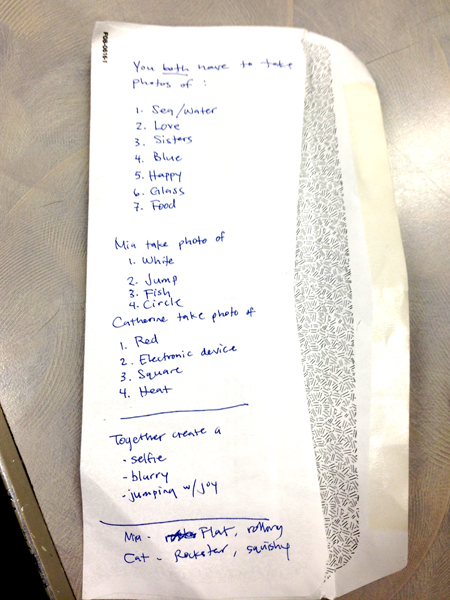 PGB-0616-1
You both have to take
photos of :
1. Sea/water
2. Love
3. Sisters
4. Blue
5. Happy
6. Glass
7. Food
Mia take photo of
1. White
2. Jump
3. Fish
4. Circle
Catherine take photo of
1. Red
2. Electronic device
3. Square
4. Heat
Together create a
- selfie
- blurry
- jumping w/joy
Mia - Flat, rolling
Cat - Rockster, squishy